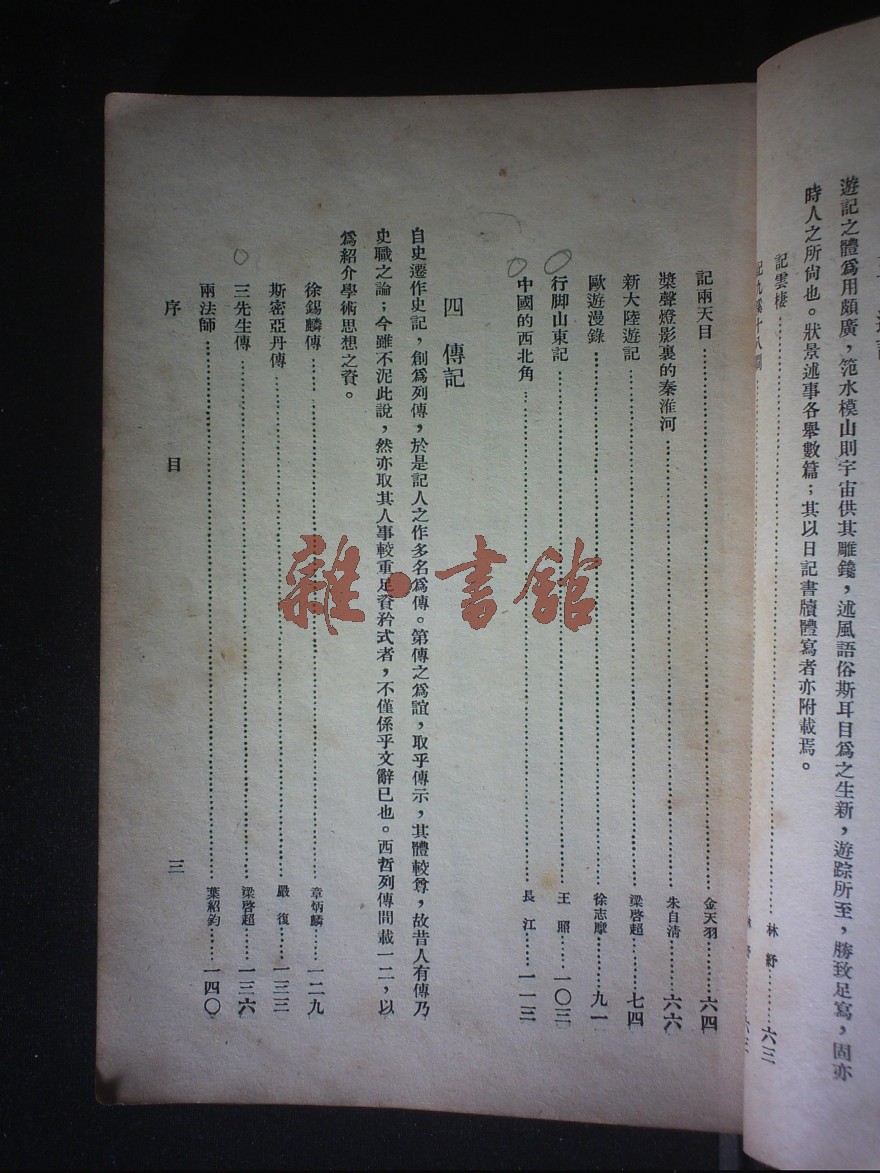 遊記之體爲用頗廣，笵水模山則宇宙供其雕鎪，述風語俗斯耳目爲之生新，遊踪所至，勝致足寫，固亦
時人之所尙也。狀景述事各舉數篇；其以日記書牘體寫者亦附載焉。
記雲棲……林紓……六三
記九溪十八澗
記兩天目……金天羽……六四
槳聲燈影裏的秦淮河……朱自清……六六
新大陸遊記……梁啓超……七四
歐遊漫錄……徐志摩……九一
行脚山東記……王照……一〇三
中國的西北角……長江……一一三
四 傳記
自史遷作史記，創爲列傳，於是記人之作多名爲傳。第傳之爲誼，取乎傳示，其體較尊，故昔人有傳乃
史職之論；今雖不泥此說，然亦取其人事較重足資矜式者，不僅係乎文辭已也。西哲列傳間載一二，以
爲紹介學術思想之資。
徐錫麟傳……章炳麟……一二九
斯密亞丹傳……嚴復……一三三
三先生傳……梁啓超……一三六
兩法師……葉紹鈞……一四〇
序目 三
雜·書館